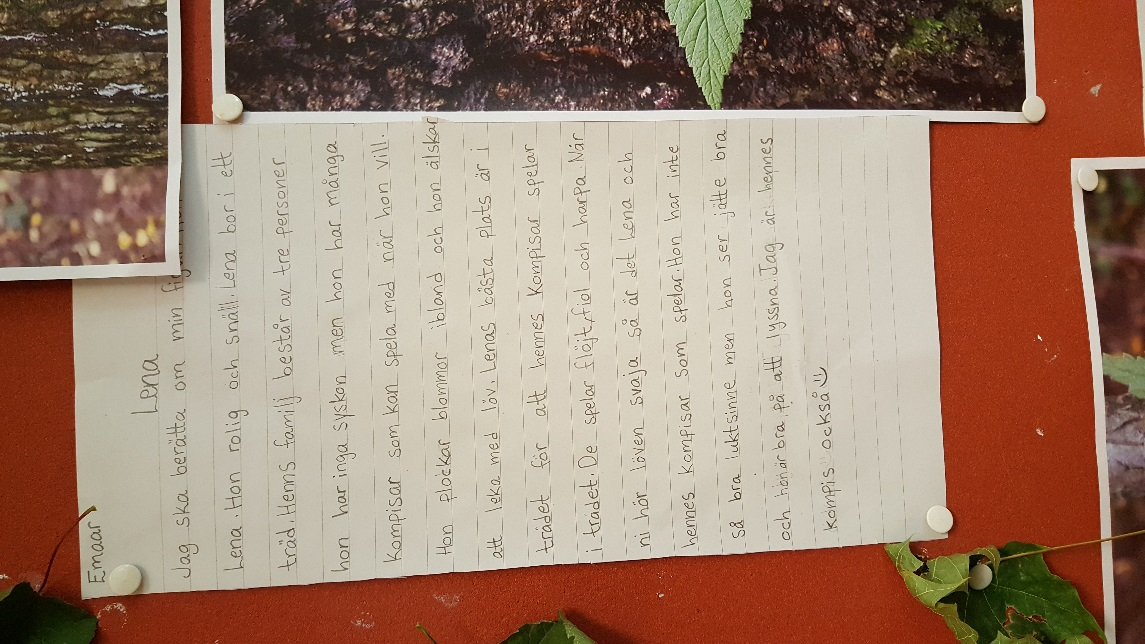 Emaar
Lena
Jag ska berätta om min
Lena. Hon rolig och snäll. Lena bor i ett
träd. Henns familj består av tre personer
hon har inga syskon men hon har många
Kompisar som kan spela med när hon vill.
Hon plockar blommor ibland och hon älskar
att leka med löv. Lenas bästa plats är i
trädet för att hennes kompisar spelar
i trädet. De spelar flöjt, fiol och harpa. När
ni hör löven svaja så är det Lena och
hennes kompisar som spelar. Hon har inte
så bra luktsinne men hon ser jätte bra
och hon är bra på att lyssna. Jag är hennes
kompis också